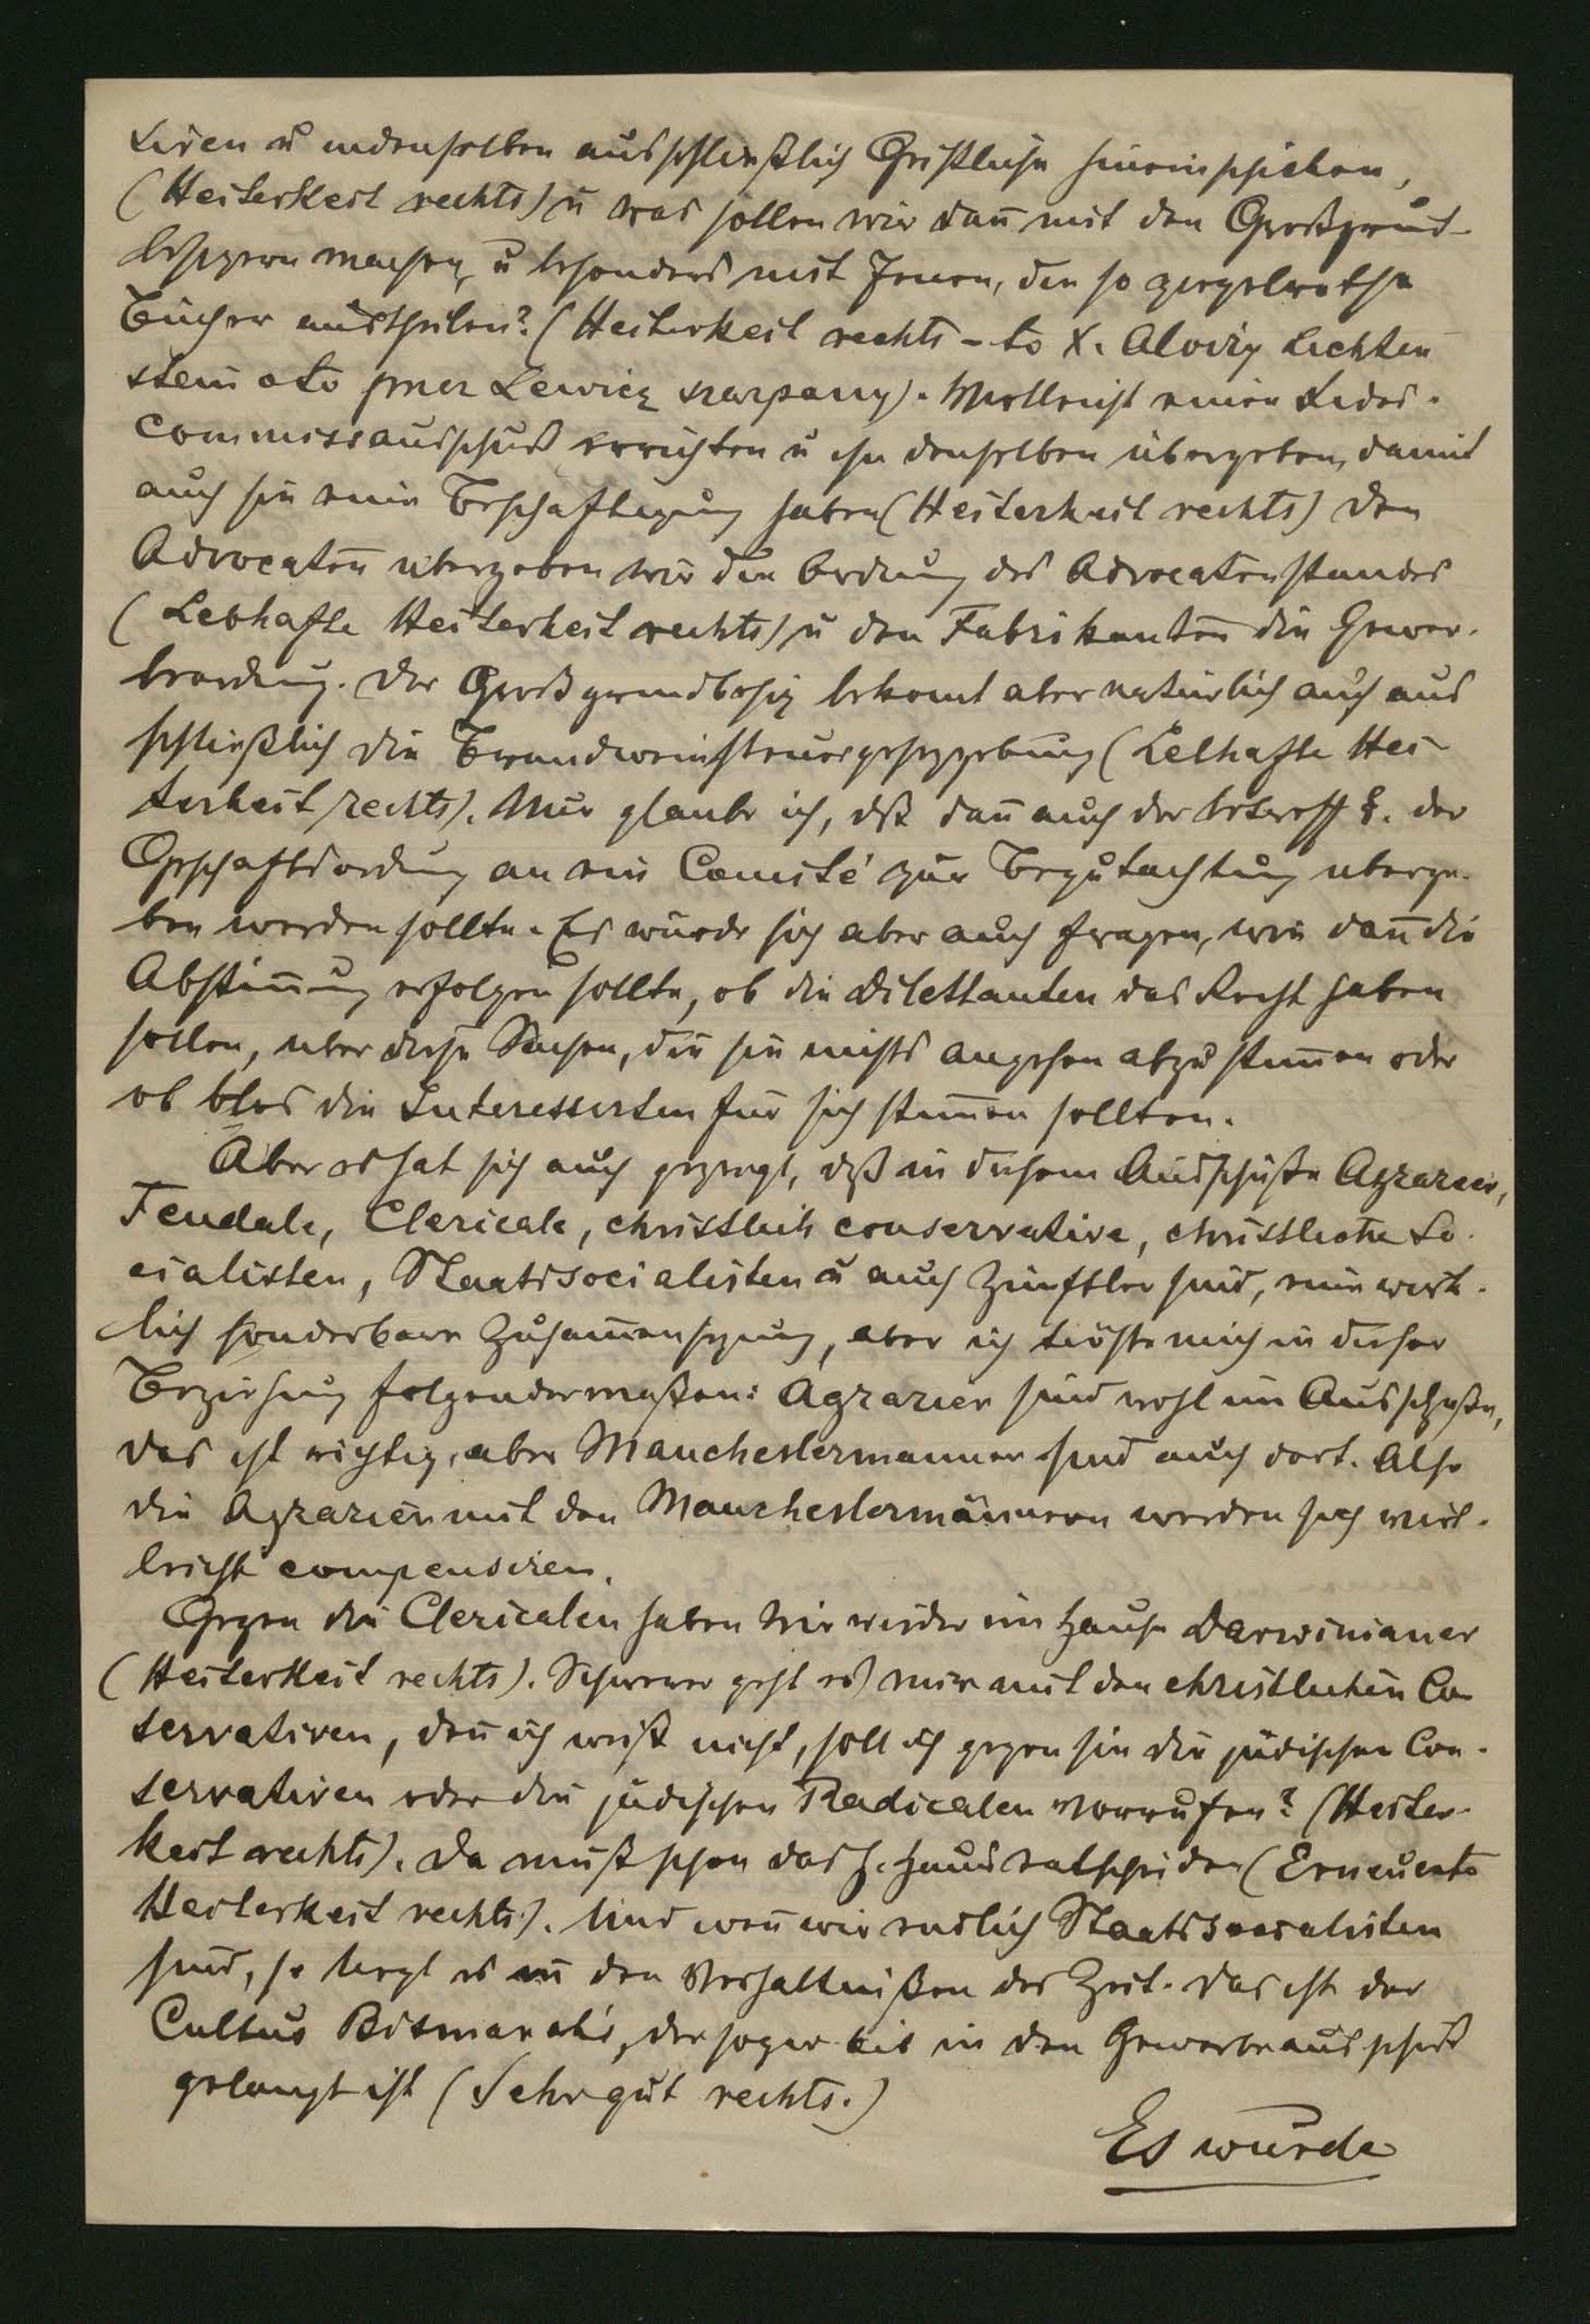 tiren u in denselben ausschließlich Geistliche hineinschicken,
(Heiterkeit rechts) u was sollen wir dan̄ mit den Großgrund-
besitzern machen, u besonders mit Jenen, die so ziegelrothe
Bücher austheilen? (Heiterkeit rechts - to X. Aloizy Lichten
stein a to przez Lewicę szarpany). Vielleicht einen Fidei-
commissausschuß errichten u ihn denselben übergeben, damit
auch sie eine Beschaftigung haben (Heiterkeit rechts) Den
Advocaten ubergeben wir die Ordnung des Advocatenstandes
(Lebhafte Heiterkeit rechts) u den Fabrikanten die Gewer-
beordnung. Der Großgrundbesitz bekomt aber natürlich auch aus
schließlich die Brandweinsteuergesetzgebung (Lebhafte Hei-
terkeit rechts). Nur glaube ich, dß dan̄ auch der betreff §. der
Geschaftsordnung an ein Comité zur Begutachtung uberge-
ben werden sollte. Es würde sich aber auch fragen, wie dan̄ die
Abstim̄ung erfolgen sollte, ob die Dilettanten das Recht haben
sollen, uber diese Sachen, die sie nichts angehen abzustim̄en oder
ob blos die Interessirten fur sich stim̄en sollten.
Aber es hat sich auch gezeigt, dß in diesem Ausschuße Agrarier,
Feudale, Clericale, christlich conservative, christliche So-
cialisten, Staatssocialisten u auch Zünftler sind, eine wirk-
lich sonderbare Zusam̄ensetzung, aber ich tröste mich in dieser
Beziehung folgendermaßen: Agrarier sind wohl im Ausschuße,
das ist richtig, aber Manchestermanner sind auch dort. Also
die Agrarier mit den Manchestermännern werden sich viel-
leicht compensiren.
Gegen die Clericalen haben wir wieder im Hause Darwinianer
(Heiterkeit rechts). Schwerer geht es mir mit den christlichen Con
servativen, den̄ ich weiß nicht, soll ich gegen sie die jüdischen Con-
servativen oder die jüdischen Radicalen vorrufen? (Heiter-
keit rechts). Da muß schon das h. Haus entscheiden (Erneuerte
Heiterkeit rechts). Und wen̄ wir endlich Staatssocialisten
sind, so liegt es in den Verhaltnißen der Zeit. Das ist der
Cultus Bismarck's, der sogar bis in den Gewerbeausschuß
gelangt ist (Sehr gut rechts.)
Es wurde